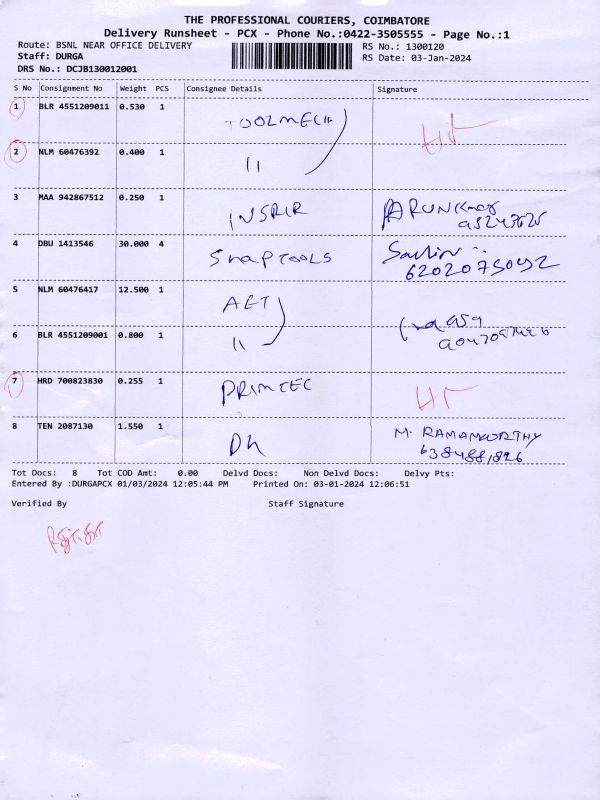 THE PROFESSIONAL COURIERS, COIMBATORE
Delivery Runsheet - PCX - Phone No.:0422-3505555 - Page No.:1
Route: BSNL NEAR OFFICE DELIVERY RS No.: 1300120
Staff: DURGA RS Date: 03-Jan-2024
DRS No.: DCJB130012001
S No Consignment No Weight PCS Consignee Details Signature
1 BLR 4551209011 0.530 1 TOOLMECH
2 NLM 60476392 0.400 1 11
3 MAA 942867512 0.250 1 ARUNKumar
4 DBU 1413546 30.000 4 SnapTOOLS
6202075092
5 NLM 60476417 12.500 1 AET
6 BLR 4551209001 0.800 1 11
7 HRD 700823830 0.255 1 PRIMTEC
8 TEN 2087130 1.550 1 M. RAMAMOORTHY
6384881896
Tot Docs: 8 Tot COD Amt: 0.00 Delvd Docs: Non Delvd Docs: Delvy Pts:
Entered By :DURGAPCX 01/03/2024 12:05:44 PM Printed On: 03-01-2024 12:06:51
Verified By Staff Signature